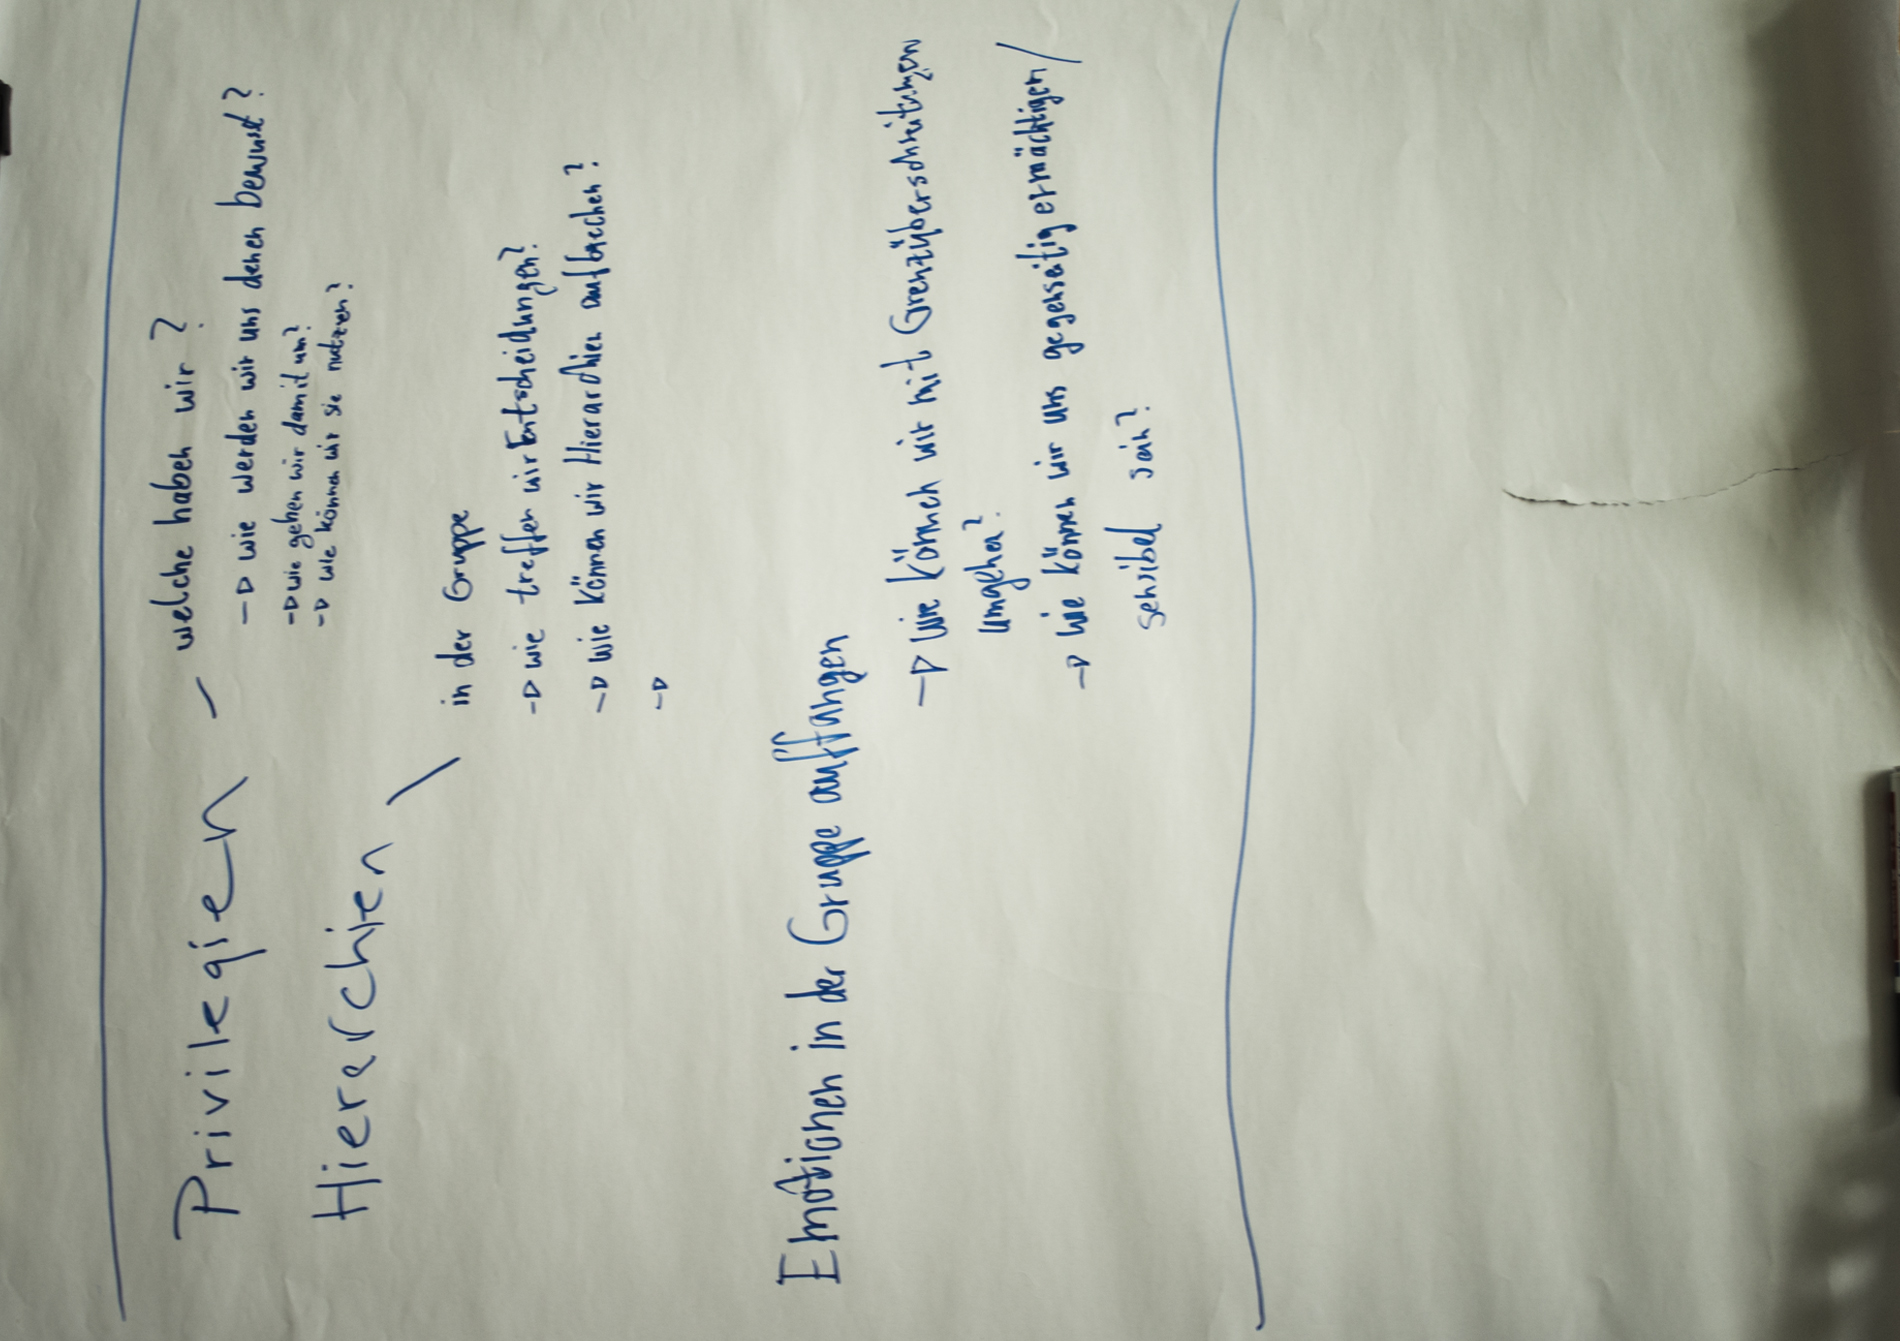 Privilegien – welche haben wir?
→ wie werden wir uns denen bewusst?
→ wie gehen wir damit um?
→ wie können wir sie nutzen?
Hierarchien \ in der Gruppe
→ wie treffen wir Entscheidungen?
→ wie können wir Hierarchien aufbrechen?
→
Emotionen in der Gruppe auffangen
→ Wie können wir mit Grenzüberschreitungen
umgehen?
→ Wie können wir uns gegenseitig ermächtigen/
sensibel sein?